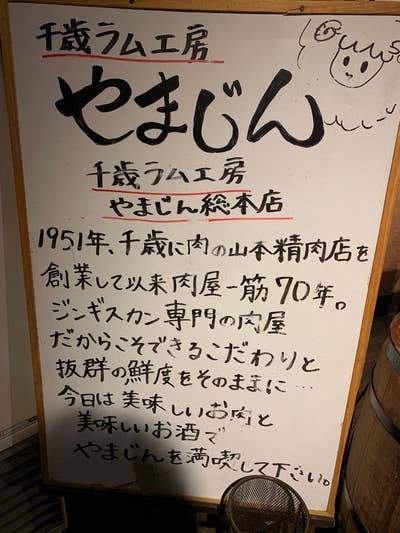 千歳ラム工房
やまじん
千歳ラム工房
やまじん総本店
1951年、千歳に肉の山本精肉店を
創業して以来肉屋一筋70年。
ジンギスカン専門の肉屋
だからこそできるこだわりと
抜群の鮮度をそのままに…
今日は美味しいお肉と
美味しいお酒で
やまじんを満喫して下さい。